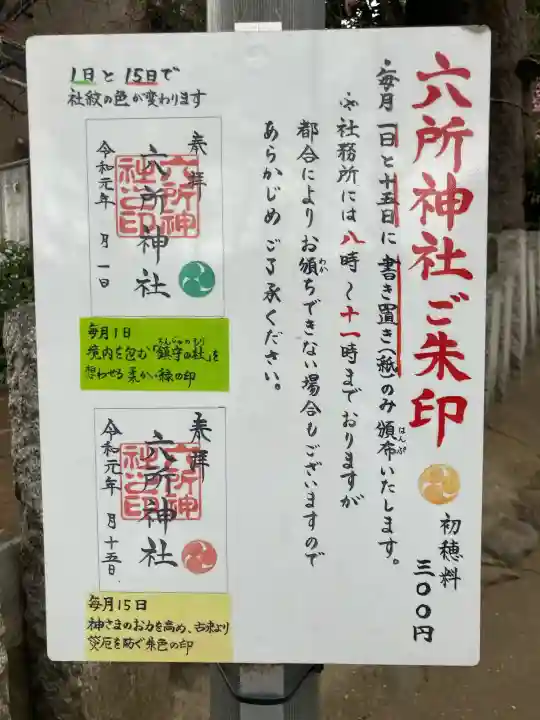 六所神社ご朱印
初穂料
三〇〇円
・毎月一日と十五日に書き置き(紙)のみ頒布いたします。
はんぷ
※社務所には八時〜十一時までおりますが
都合によりお頒ちできない場合もございますので
わか
あらかじめご了承ください。
1日と15日で
社紋の色が変わります
奉拝
六所神社
六所神
社之印
令和元年 月一日
毎月1日
境内を包む「鎮守の杜」を
ちんじゅのもり
想わせる柔かい緑の印
奉拝
六所神社
六所神
社之印
令和元年 月十五日
毎月15日
神さまのお力を高め、古来より
災厄を防ぐ朱色の印